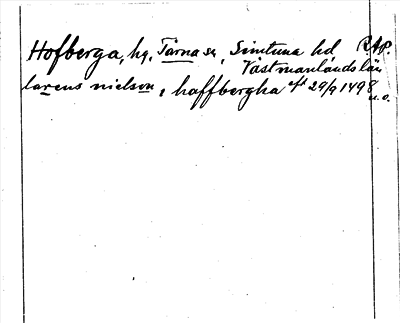 Hofberga, hg, Tärna sn, Simtuna hd RAP.
Västmanlands län
larens nielson, haffbergha eft 29/9 1498
u.o.